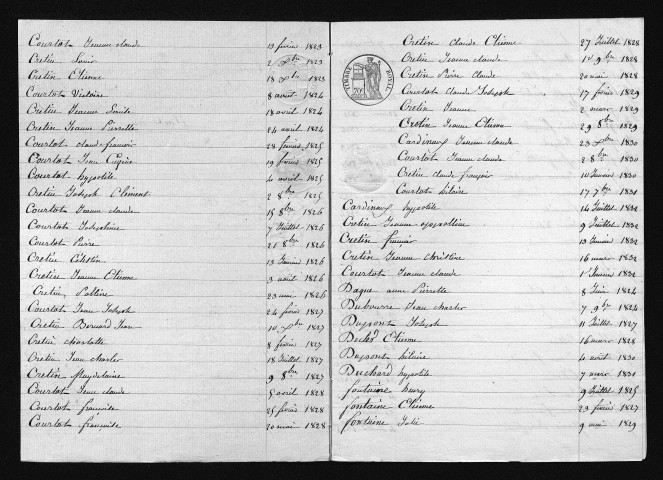 Courtot Jeanne claude 19 février 1823
Cretin Louis 2 Xbre 1823
Cretin Etienne 18 Xbre 1823
Courtot Victoire 8 août 1824
Cretin Jeanne 18 avril 1824
Cretin Jeanne Pierrette 24 avril 1824
Courtot claude françois 28 février 1825
Courtot Jean 19 février 1825
Courtot hypolite 4 avril 1825
Cretin Joseph Clément 2 8bre 1825
Courtot Jeanne claude 15 8bre 1826
Courtot Josephine 7 Juillet 1826
Courtot Pierre 21 8bre 1826
Cretin Célestin 13 Janvier 1826
Cretin Jeanne Etienne 3 août 1826
Cretin 23 mai 1826
Courtot Jean Joseph 24 février 1827
Cretin Bernard Jean 10 Xbre 1827
Cretin charlotte 8 février 1827
Cretin Jean charles 18 Juillet 1827
Cretin Magdelaine 9 8bre 1827
Courtot Jean claude 5 avril 1828
Courtot françoise 25 février 1828
Courtot françoise 20 mai 1828
TIMBRE ROYAL
Cretin claude Etienne 27 Juillet 1828
Cretin Jeanne claude 1er 9bre 1828
Cretin Pierre claude 20 mai 1828
Courtot claude Joseph 17 février 1829
Cretin Jeanne 2 mars 1829
Cretin Jeanne Etienne 29 8bre 1829
Cardinaux Jeanne claude 23 Xbre 1830
Courtot Jeanne claude 28 8bre 1830
Cretin claude françois 10 Janvier 1830
Courtot hilaire 17 7bre 1831
Cardinaux hypolite 14 Juillet 1832
Cretin Jeanne 9 Juillet 1832
Cretin françois 13 Janvier 1832
Cretin Jeanne Christine 16 mars 1832
Courtot Jeanne claude 1er Janvier 1832
Dague anne Pierrette 8 Juin 1824
Dubourre Jean charles 7 9bre 1824
Dupont Joseph 11 Juillet 1827
Doclot Etienne 16 mars 1828
Dupont hilaire 4 août 1830
Duchard hypolite 7 mars 1831
fontaine henry 9 Juillet 1825
fontaine Etienne 23 février 1827
fontaine Julie 9 mai 1829